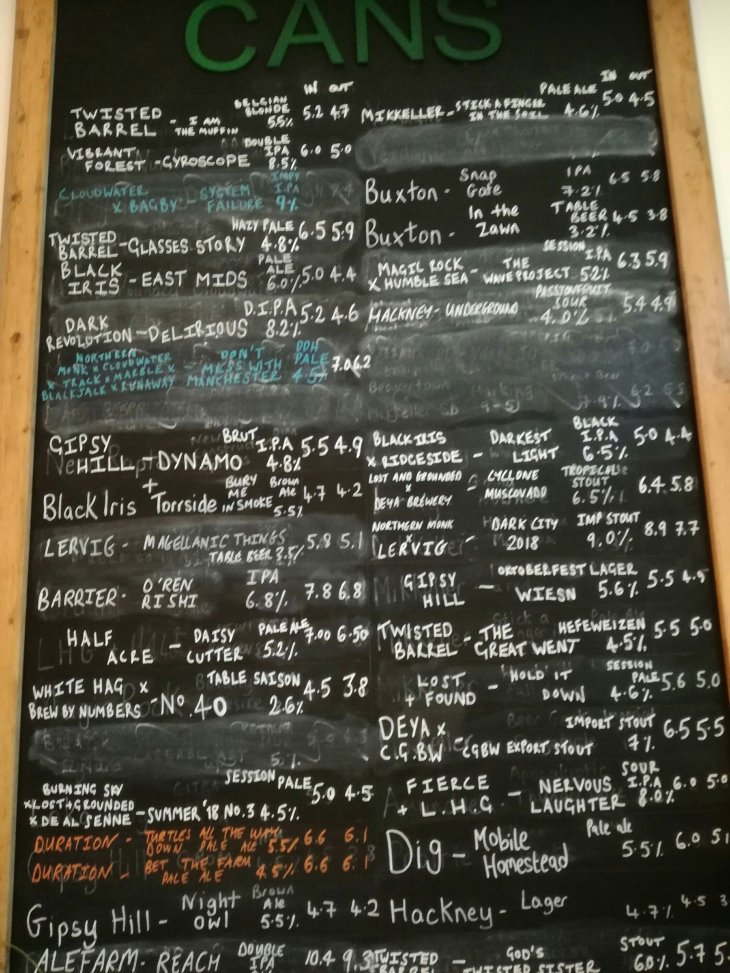 CANS
IN OUT
TWISTED BARREL - I AM THE MUFFIN BELGIAN BLONDE 5.5% 5.2 4.7
VIBRANT FOREST - GYROSCOPE DOUBLE IPA 8.5% 6.0 5.0
CLOUDWATER X BAGBY - SYSTEM FAILURE IMPY I.P.A 9%
TWISTED BARREL - GLASSES STORY HAZY PALE 4.8% 6.5 5.9
BLACK IRIS - EAST MIDS PALE ALE 6.0% 5.0 4.4
DARK REVOLUTION - DELIRIOUS D.I.P.A 8.2% 5.2 4.6
NORTHERN MONK X CLOUDWATER X TRACK X MARBLE X BLACKJACK X RUNAWAY - DON'T MESS WITH MANCHESTER DDH PALE 4.5% 7.0 6.2
GIPSY HILL - DYNAMO BRUT I.P.A 4.8% 5.5 4.9
Black Iris + Torrside BURY ME IN SMOKE Brown Ale 5.5% 4.7 4.2
LERVIG - MAGELLANIC THINGS TABLE BEER 3.5% 5.8 5.1
BARRIER - O'REN RISHI IPA 6.8% 7.8 6.8
HALF ACRE - DAISY CUTTER PALE ALE 5.2% 7.00 6.50
WHITE HAG X BREW BY NUMBERS - No. 40 TABLE SAISON 2.6% 4.5 3.8
BURNING SKY X LOST + GROUNDED X DE AL SENNE - SUMMER '18 NO.3 SESSION PALE 4.5% 5.0 4.5
DURATION - TURTLES ALL THE WAY DOWN PALE ALE 5.5% 6.6 6.1
DURATION - BET THE FARM PALE ALE 4.5% 6.6 6.1
Gipsy Hill - Night Owl Brown Ale 5.5% 4.7 4.2
ALEFARM - REACH DOUBLE IPA 10.4 9.3
IN OUT
MIKKELLER - STICK A FINGER IN THE SOIL PALE ALE 4.6% 5.0 4.5
Buxton - Snap Gate IPA 7.2% 6.5 5.8
Buxton - In the Zawn TABLE BEER 3.2% 4.5 3.8
MAGIC ROCK X HUMBLE SEA - THE WAVE PROJECT SESSION IPA 5.2% 6.3 5.9
HACKNEY - UNDERGROUND PASSIONFRUIT SOUR 4.0% 5.4 4.9
BLACK IRIS X RIDGESIDE - DARKEST LIGHT BLACK I.P.A 6.5% 5.0 4.4
LOST AND GROUNDED DEYA BREWERY - CYCLONE MUSCOVADO TROPICAL STOUT 6.5% 6.4 5.8
NORTHERN MONK X LERVIG - DARK CITY 2018 IMP STOUT 9.0% 8.9 7.7
GIPSY HILL - OKTOBERFEST LAGER WIESN 5.6% 5.5 4.5
TWISTED BARREL - THE GREAT WENT HEFEWEIZEN 4.5% 5.5 5.0
LOST + FOUND - 'HOLD IT DOWN SESSION PALE 4.6% 5.6 5.0
DEYA X C.G.BW - CGBW EXPORT STOUT IMPORT STOUT 7% 6.5 5.5
FIERCE + L.H.G - NERVOUS LAUGHTER SOUR I.P.A 8.0% 6.0 5.0
Dig - Mobile Homestead Pale ale 5.5% 6.0
Hackney - Lager 4.7% 4.5
TWISTED BARREL - GOD'S TWISTED SISTER STOUT 6.0% 5.7